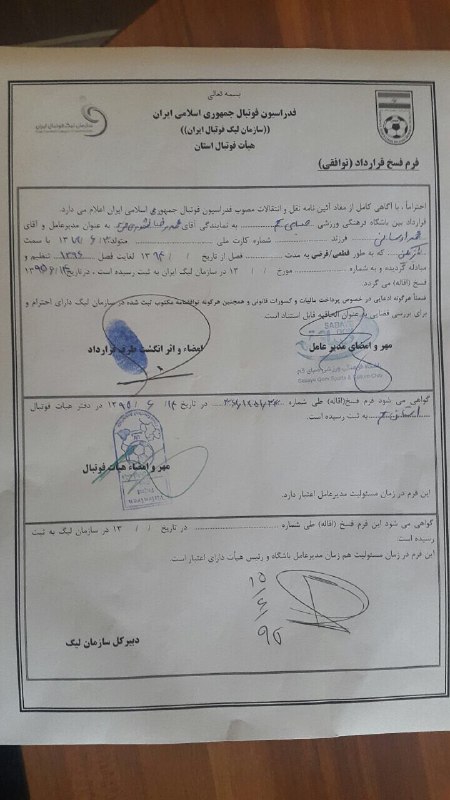 بسمه تعالی
فدراسیون فوتبال جمهوری اسلامی ایران
((سازمان لیگ فوتبال ایران))
هیأت فوتبال استان
سازمان لیگ فوتبال ایران
فرم فسخ قرارداد (توافقی)
احتراماً ، با آگاهی کامل از مفاد آئین نامه نقل و انتقالات مصوب فدراسیون فوتبال جمهوری اسلامی ایران اعلام می دارد.
قرارداد بین باشگاه فرهنگی ورزشی به نمایندگی آقای به عنوان مدیرعامل و آقای
فرزند شماره کارت ملی متولد ۱۳ با سمت
بازیکن که به طور قطعی/قرضی به مدت از فصل / / ۱۳ لغایت فصل تنظیم و
مبادله گردیده و به شماره مورخ / / ۱۳ در سازمان لیگ ایران به ثبت رسیده است ، در تاریخ
فسخ (اقاله) می گردد
ضمناً هرگونه ادعایی در خصوص پرداخت مالیات و کسورات قانونی و همچنین هرگونه توافقنامه مکتوب ثبت شده در سازمان لیگ دارای احترام و
برای بررسی قضایی به عنوان الحاقیه قابل استناد است.
مهر و امضای مدیر عامل
امضاء و اثر انگشت طرف قرارداد
گواهی می شود فرم فسخ(اقاله) طی شماره در تاریخ ۱۴ / ۶ / ۱۳۹۵ در دفتر هیأت فوتبال
استان قم به ثبت رسیده است.
مهر و امضاء هیأت فوتبال
این فرم در زمان مسئولیت مدیرعامل اعتبار دارد.
گواهی می شود این فرم فسخ (اقاله) طی شماره در تاریخ / / ۱۳ در سازمان لیگ به ثبت
رسیده است.
این فرم در زمان مسئولیت هم زمان مدیرعامل باشگاه و رئیس هیأت دارای اعتبار است.
۱۵
/۶
/۹۵
دبیرکل سازمان لیگ